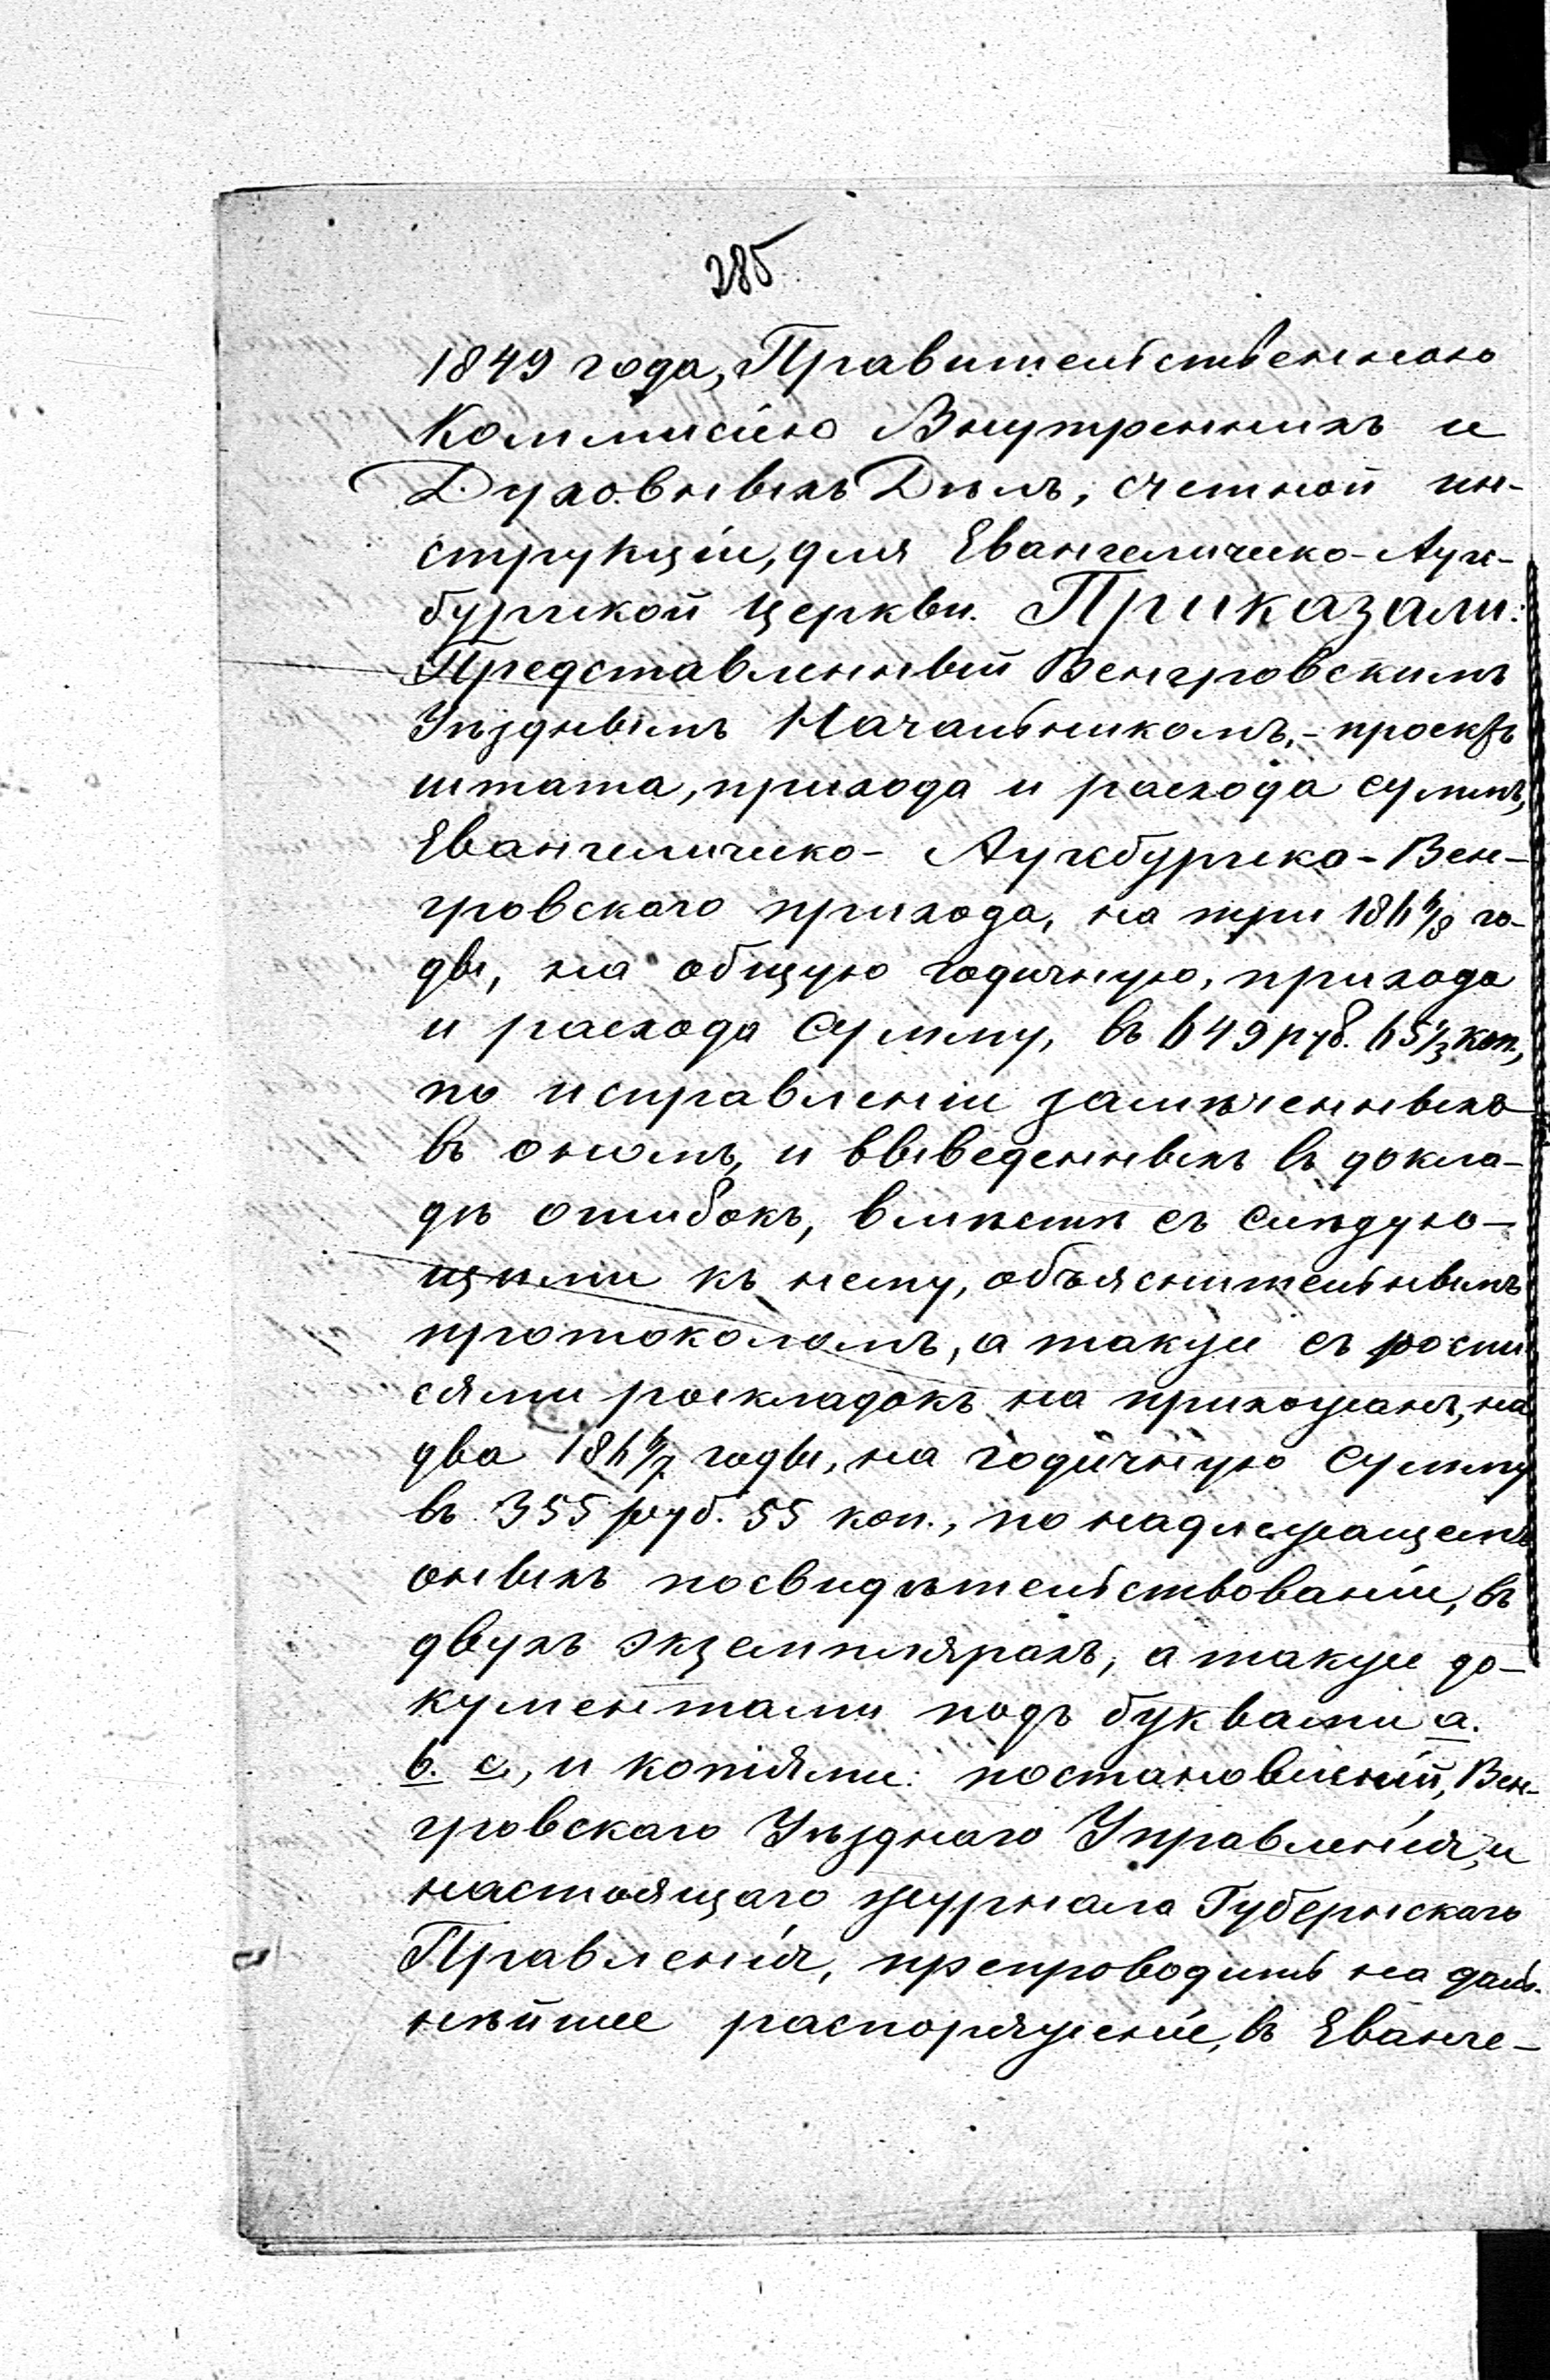 285
1849 года, Правительственною
Коммисіею Внутреннихъ и
Духовныхъ Дѣлъ, счетной ин-
струкціи, для Евангелическо-Аугс-
бургской церкви. Приказали:
Представленный Венгровскимъ
Уѣзднымъ Начальникомъ,- проектъ
штата, прихода и расхода суммъ,
Евангелическо- Аугсбургско-Вен-
гровскаго прихода, на три 186 6/8 го-
ды, на общую годичную, прихода
и расхода сумму, въ 649 руб. 65 1/3 коп.,
по исправленіи замѣченныхъ
въ ономъ, и выведенныхъ въ докла-
дѣ ошибокъ, вмѣстѣ съ слѣдую-
щими къ нему, объяснительнымъ
протоколомъ, а также съ роспи
сями роскладокъ на прихожанъ, на
два 186 6/7 годы, на годичную сумму
въ 355 руб. 55 коп., по надлежащемъ
оныхъ посвидѣтельствованіи, въ
двухъ экземплярахъ, а также до-
кументами подъ буквами a.
b. c., и копіями: постановленій, Вен-
гровскаго Уѣзднаго Управленія, и
настоящаго журнала Губернскаго
Правленія, препроводить на даль-
нѣйшее распоряженіе, въ Еванге-